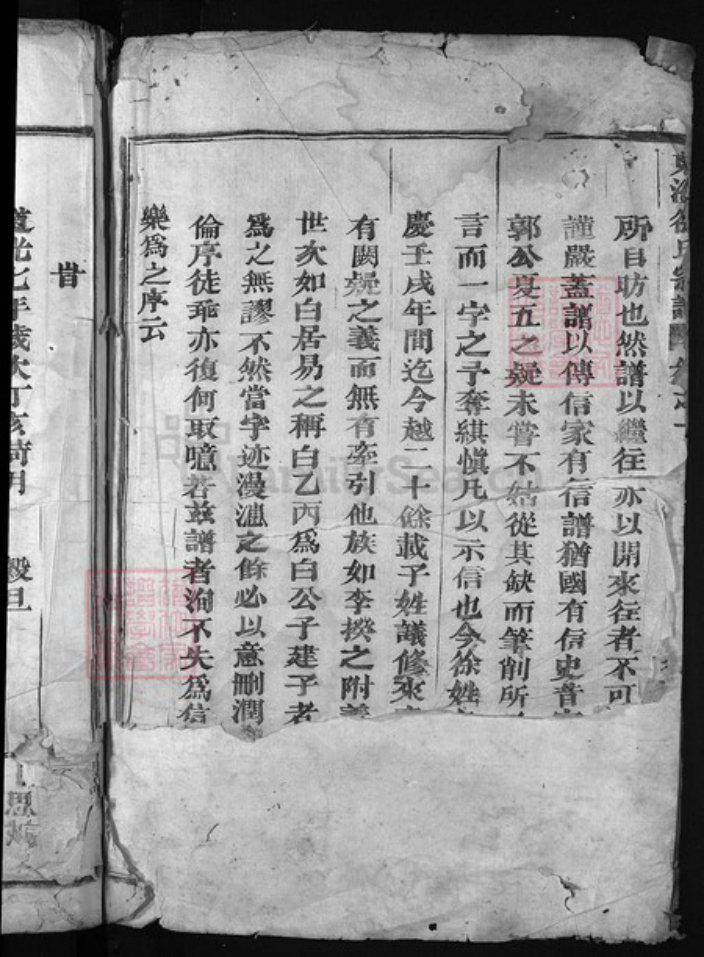 東海徐氏宗譜
所自昉也然譜以繼往亦以開來往者不可
謹嚴蓋譜以傳信家有信譜猶國有信史昔
郭公夏五之疑未嘗不姑從其缺而筆削所
言而一字之予奪綦慎凡以示信也今徐姓
慶壬戌年間迄今越二十餘載子姓議修來
有闕疑之義而無有牽引他族如李揆之附
世次如白居易之稱白乙丙為白公子建子者
為之無謬不然當字迹漫漶之餘必以意刪潤
倫序徒乖亦復何取噫若茲譜者洵不失為信
樂為之序云
旹
道光七年歲次丁亥荷月 穀旦
思
FamilySearch